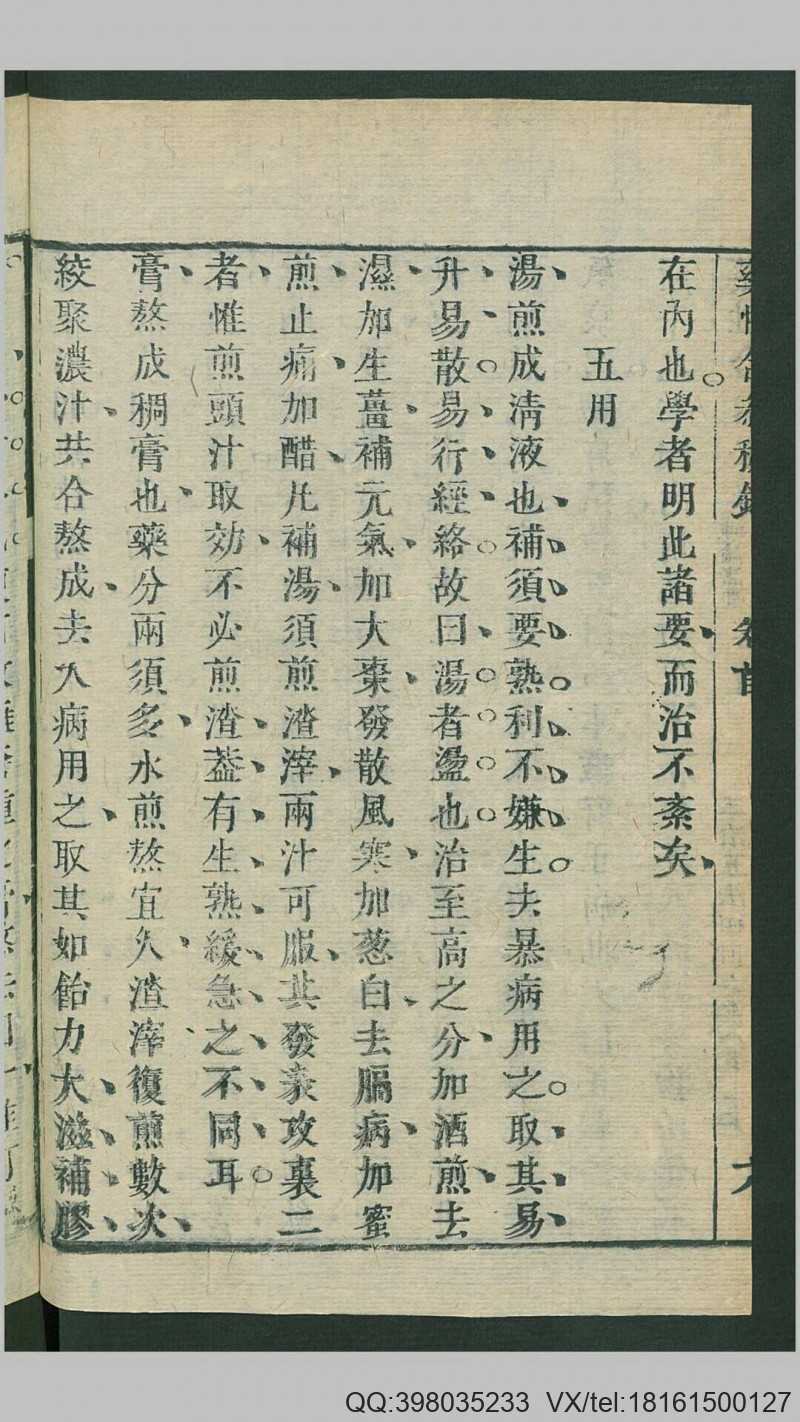 卷首
在內也學者明此諸要而治不紊矣
五用
湯煎成清液也補須要熟利不嫌生夫暴病用之取其易
升易散易行經絡故曰湯者盪也治至高之分加酒煎去
濕加生薑補元氣加大棗發散風寒加葱白去膈病加蜜
煎止痛加醋凡補湯須煎渣滓兩汁可服其發表攻裏二
者惟煎頭汁取効不必煎渣葢有生熟緩急之不同耳
膏熬成稠膏也藥分兩須多水煎熬宜久渣滓復煎數次
絞聚濃汁共合熬成去入病用之取其如飴力大滋補膠
QQ:398035233 VX/tel:18161500127